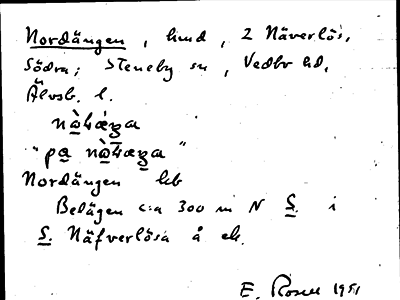 Nordängen, hmd, 2 Näverlös,
Södra; Steneby sn, Vedbo hd,
Älvsb. l.
"pa
Nordängen hb
Belägen c:a 300 m N S. i
S. Näfverlösa å ek.
E. Rosell 1951